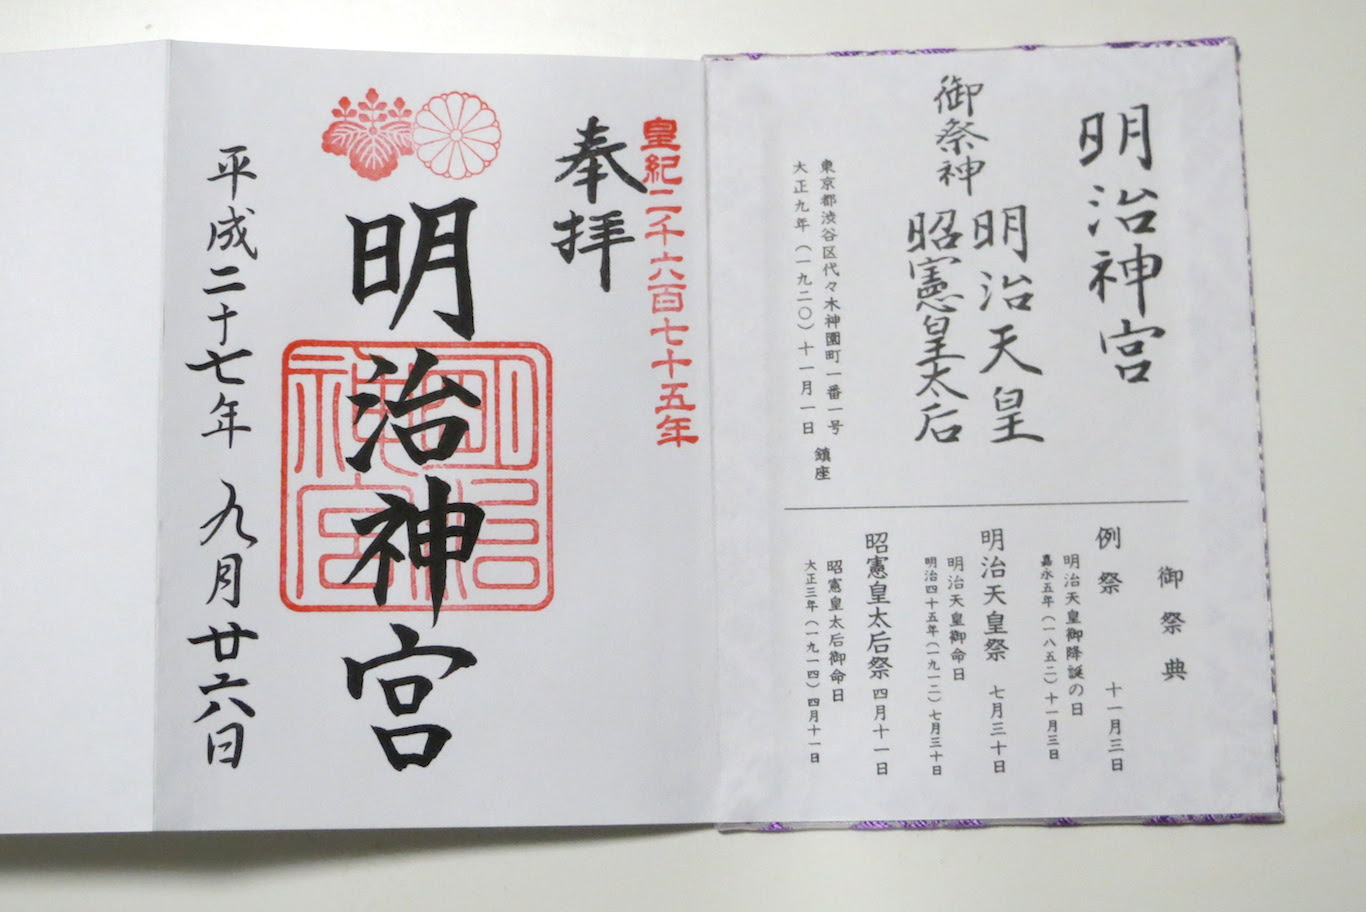 明治神宮
御祭神
明治天皇
昭憲皇太后
東京都渋谷区代々木神園町一番一号
大正九年（一九二〇）十一月一日 鎮座
御祭典
例祭 十一月三日
明治天皇御降誕の日
嘉永五年（一八五二）十一月三日
明治天皇祭 七月三十日
明治天皇御命日
明治四十五年（一九一二）七月三十日
昭憲皇太后祭 四月十一日
昭憲皇太后御命日
大正三年（一九一四）四月十一日
皇紀二千六百七十五年
奉拝
明治神宮
明治神宮
平成二十七年 九月廿六日